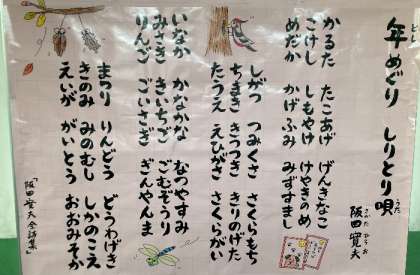 年めぐり しりとり唄
阪田寛夫
かるた たこあげ げんきなこ
こけし しもやけ けやきのめ
めだか かげふみ みずすまし
しがつ つみくさ さくらもち
ちまき きつつき きりのげた
たうえ えひがさ さくらがい
いなか かなかな なつやすみ
みさき きいちご ごむぞうり
りんご ごいさぎ ぎんやんま
まつり りんどう どうわげき
きのみ みのむし しかのこえ
えいが がいとう おおみそか
「阪田寛夫全詩集」